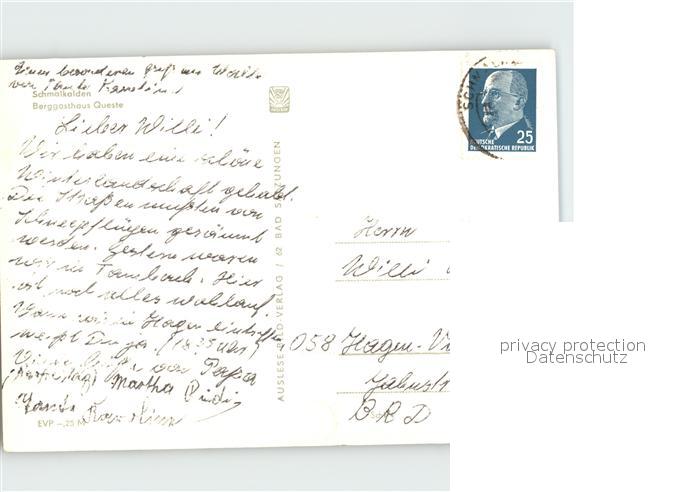 Einen besonderen Gruß
von Tante
Schmalkalden
Berggasthaus Queste
Lieber Willi!
Wir haben eine schöne
Winterlandschaft gehabt.
Die Straßen mußten von
Schneepflügen geräumt
werden. Gestern waren
wir in Tambach. Hier
ist noch alles wohlauf.
Wann wir in Hagen eintreffen
weißt Du ja (18.35 Uhr)
Viele Grüße von Papa
Martha
EVP -,25 M
AUSLESE-BILD-VERLAG / 62 BAD SALZUNGEN
25
DEUTSCHE
DEMOKRATISCHE REPUBLIK
Herrn
Willi
058 Hagen-
BRD
privacy protection
Datenschutz